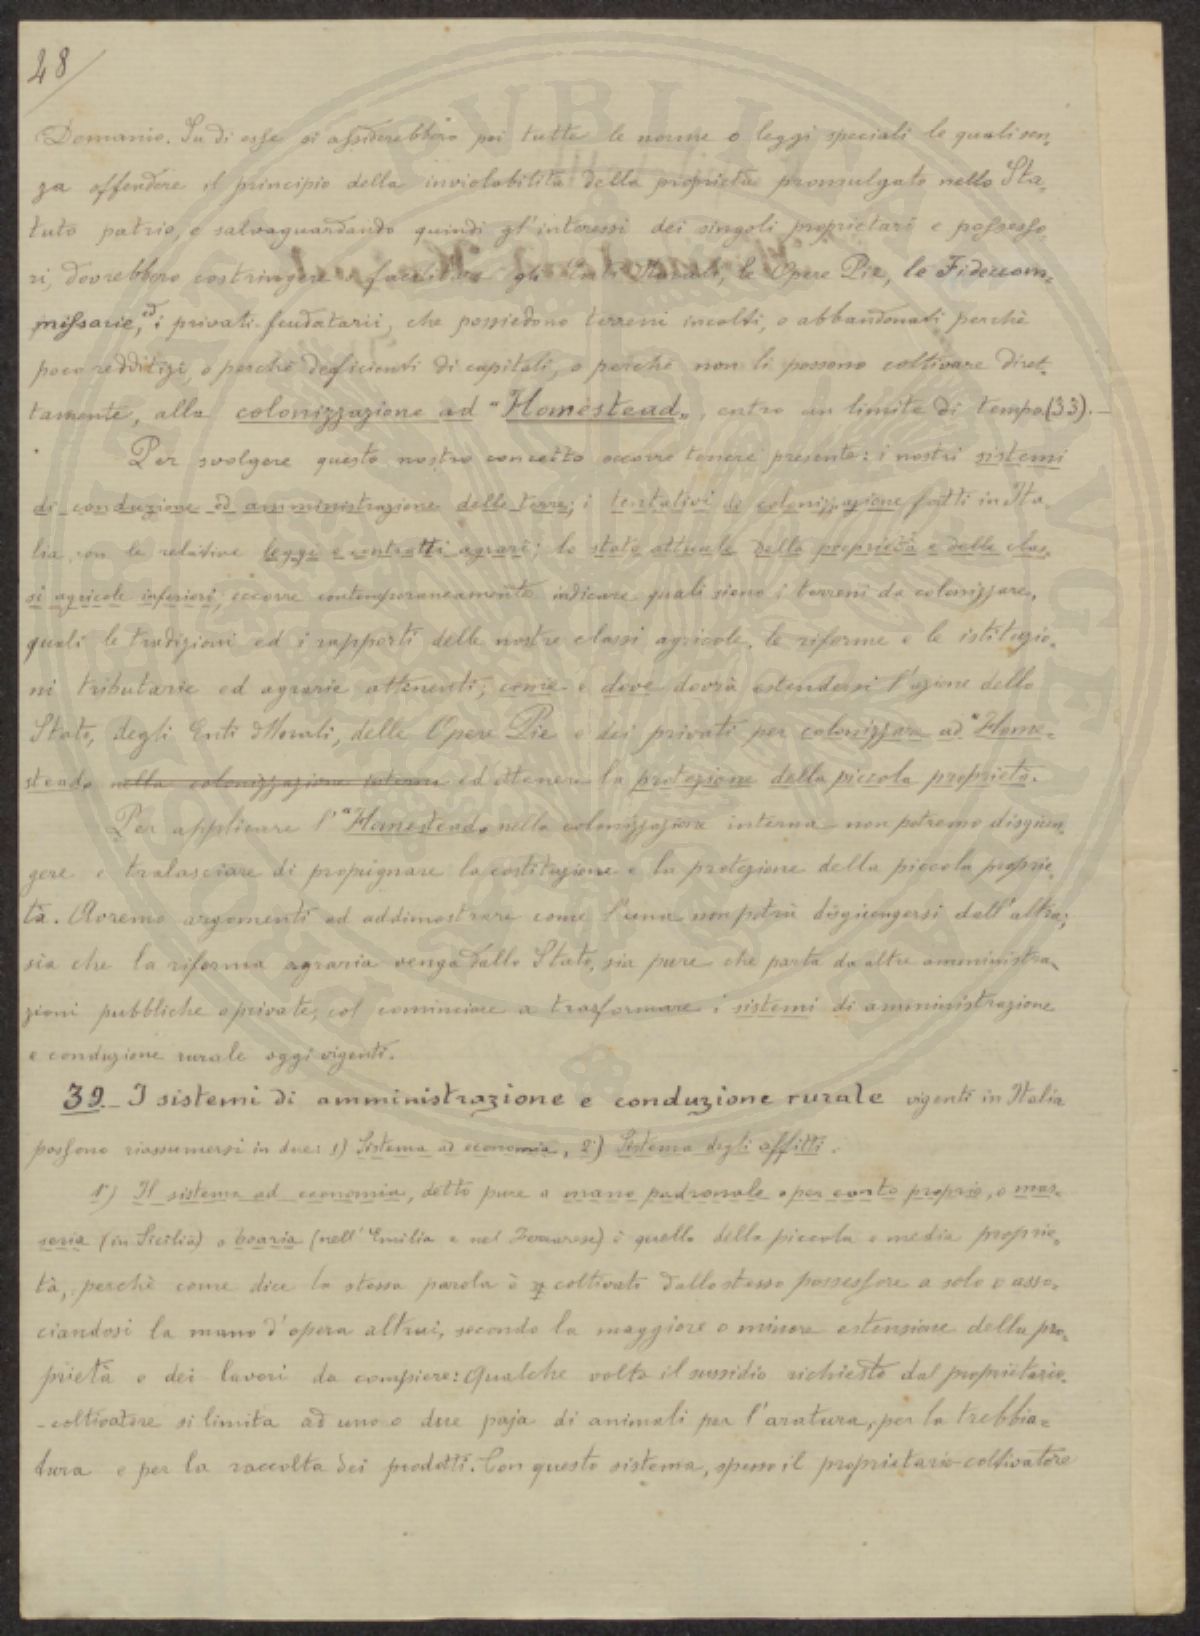 48
Demanio. Su di esse si assiderebbero poi tutte le norme o leggi speciali le quali sen-
za offendere il principio della inviolabilità della proprietà promulgato nello Sta-
tuto patrio, e salvaguardando quindi gl'interessi dei singoli proprietari e possesso-
ri, dovrebbero costringere o facilitare gli Enti Morali, le Opere Pie, le Fidecom-
missarie, ed i privati feudatarii, che possiedono terreni incolti, o abbandonati perchè
poco redditizi, o perchè deficienti di capitali, o perchè non li possono coltivare diret-
tamente, alla colonizzazione ad "Homestead", entro un limite di tempo (33). —
Per svolgere questo nostro concetto occorre tenere presente: i nostri sistemi
di conduzione ed amministrazione delle terre; i tentativi di colonizzazione fatti in Ita-
lia con le relative leggi e contratti agrari; lo stato attuale della proprietà e delle clas-
si agricole inferiori; occorre contemporaneamente indicare quali sieno i terreni da colonizzare,
quali le tradizioni ed i rapporti delle nostre classi agricole, le riforme e le istituzio-
ni tributarie ed agrarie attinenti; come e dove dovrà estendersi l'azione dello
Stato, degli Enti Morali, delle Opere Pie e dei privati per colonizzare ad "Home-
stead" nella colonizzazione interna ed ottenere la protezione della piccola proprietà.
Per applicare l'"Homestead" nella colonizzazione interna non potremo disgiun-
gere e tralasciare di propugnare la costituzione e la protezione della piccola proprie-
tà. Avremo argomenti ad addimostrare come l'una non potrà disgiungersi dall'altra;
sia che la riforma agraria venga dallo Stato, sia pure che parta da altre amministra-
zioni pubbliche o private, col cominciare a trasformare i sistemi di amministrazione
e conduzione rurale oggi vigenti.
39. — I sistemi di amministrazione e conduzione rurale vigenti in Italia
possono riassumersi in due: 1) Sistema ad economia, 2) Sistema degli affitti.
1°) Il sistema ad economia, detto pure a mano padronale o per conto proprio, o mas-
seria (in Sicilia) o boaria (nell'Emilia e nel Ferrarese) è quello della piccola e media proprie-
tà, perchè come dice la stessa parola è coltivata dallo stesso possessore a solo o asso-
ciandosi la mano d'opera altrui, secondo la maggiore o minore estensione della pro-
prietà e dei lavori da compiere: Qualche volta il sussidio richiesto dal proprietario-
-coltivatore si limita ad uno o due paja di animali per l'aratura, per la trebbia-
tura e per la raccolta dei prodotti. Con questo sistema, spesso il proprietario-coltivatore